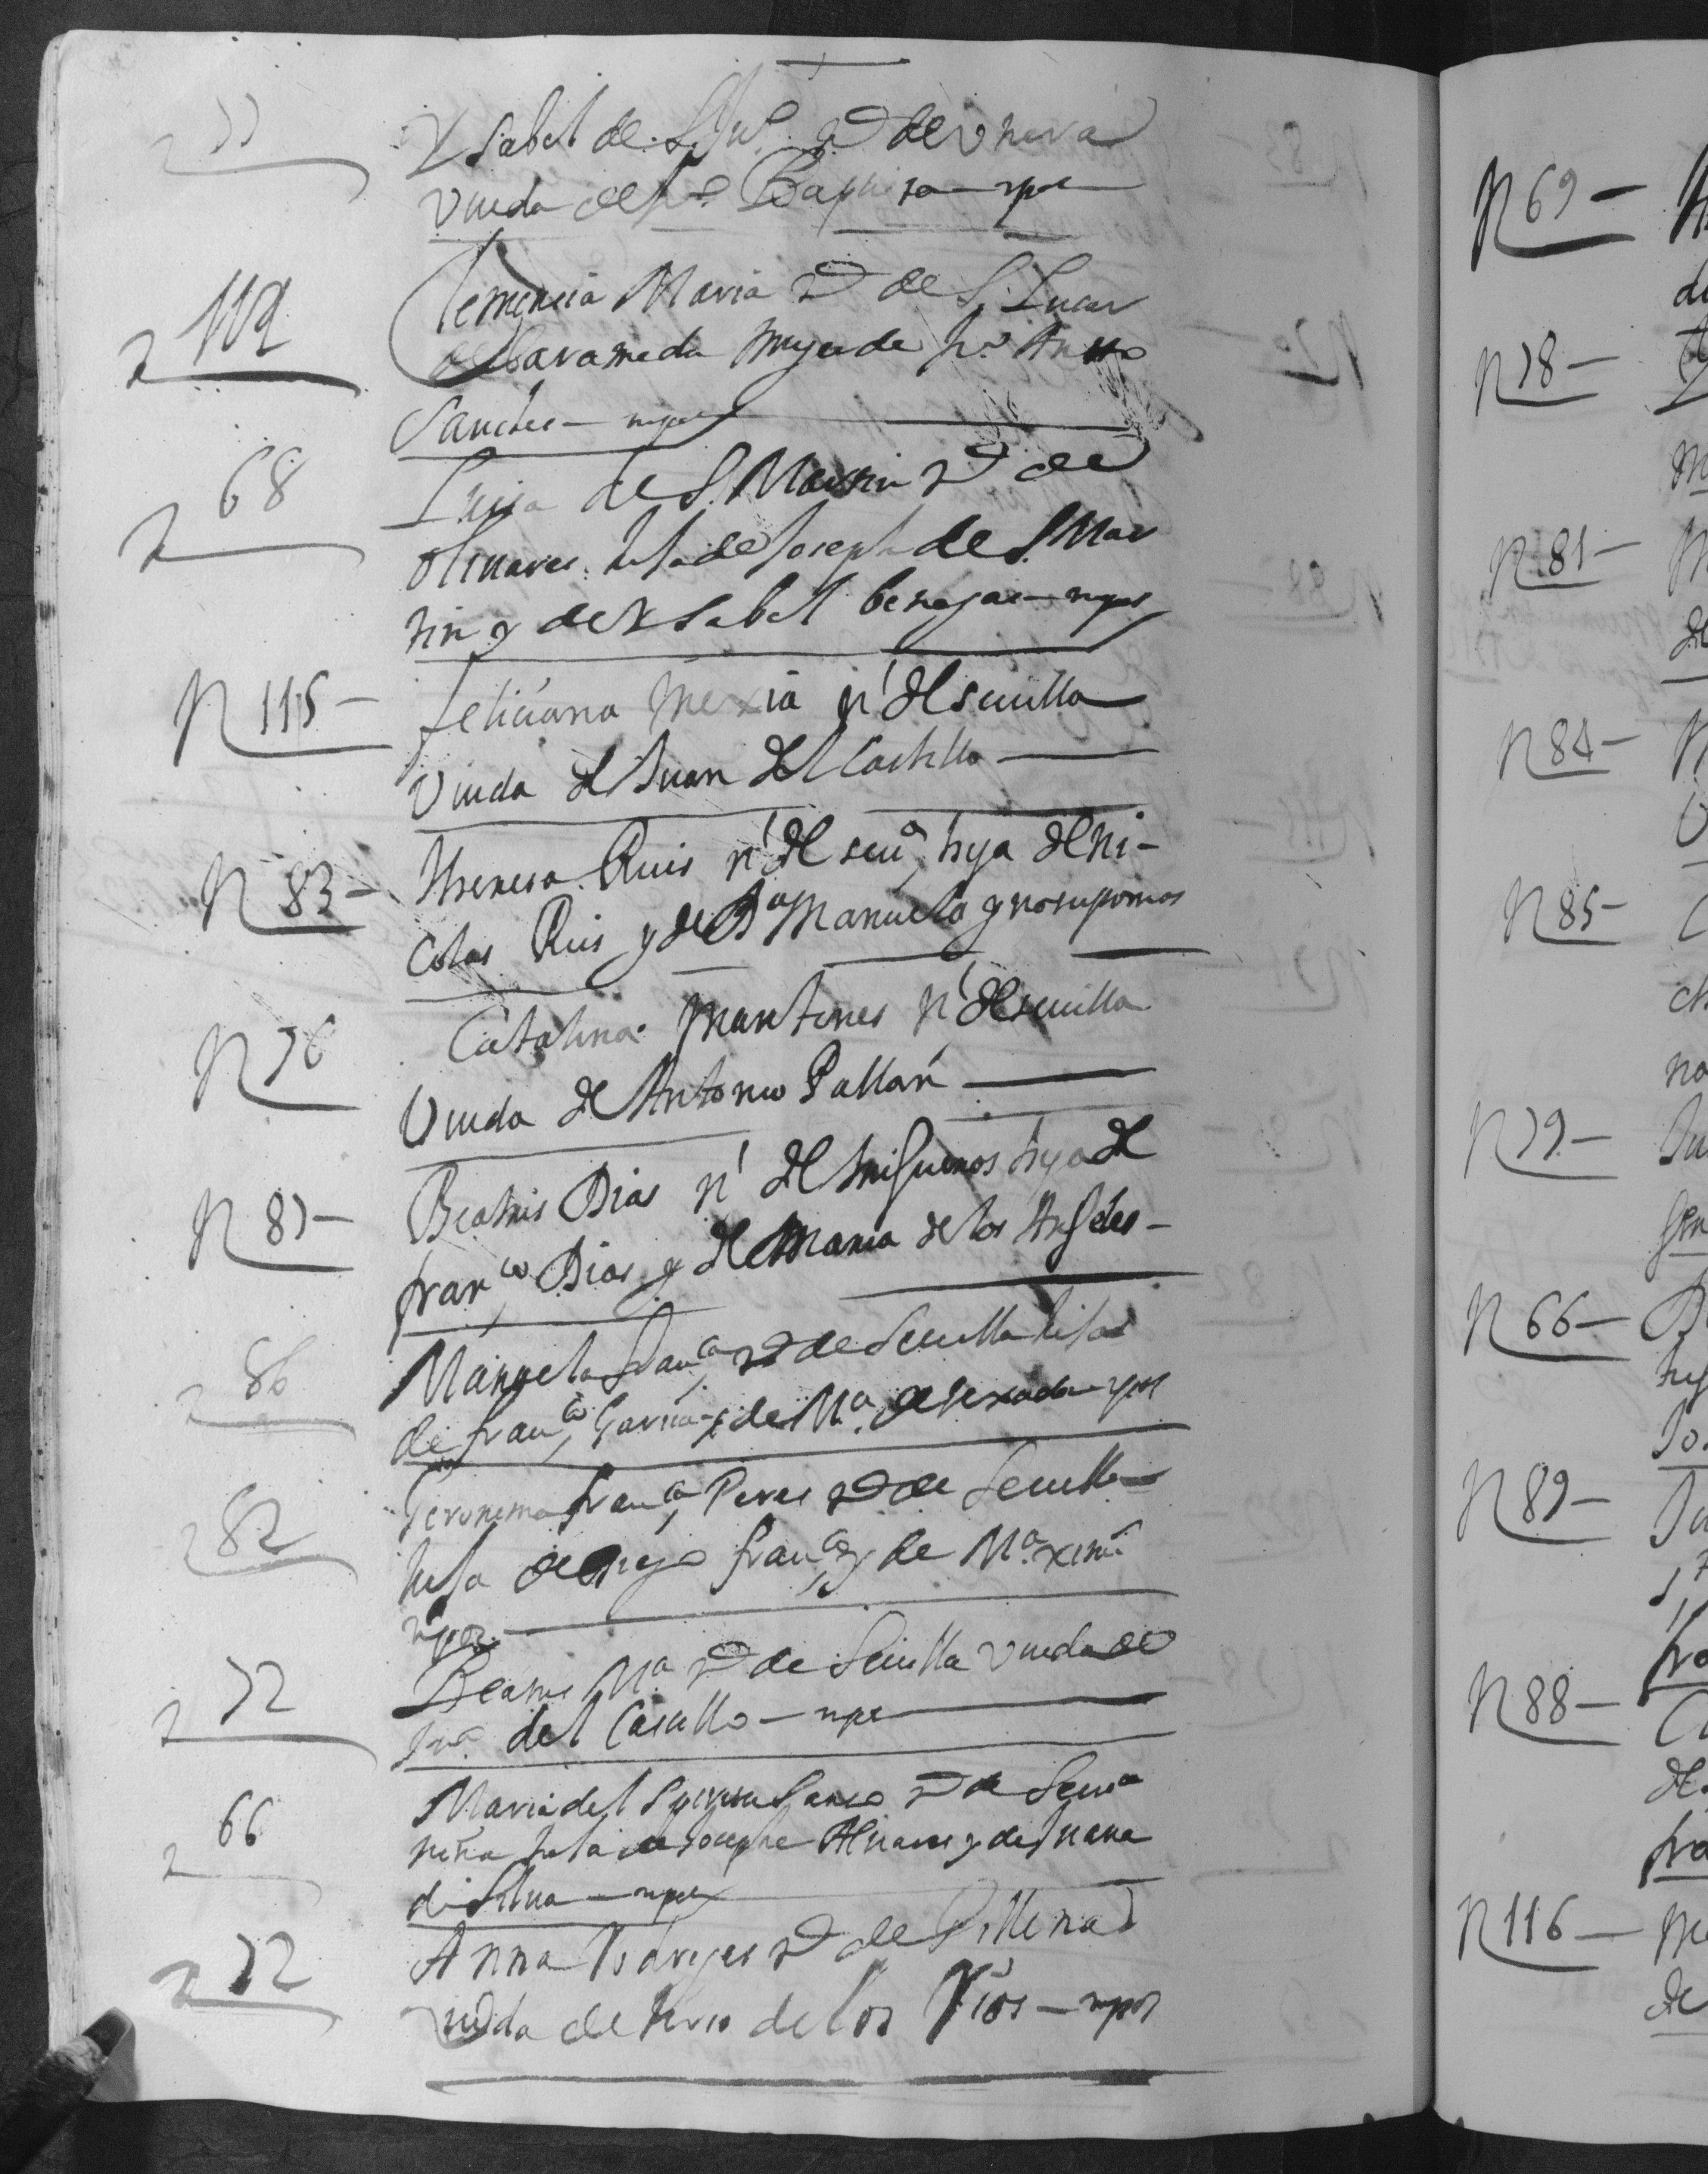 77 Ysabel de S. Ju.º n.l de Vtrera
Viuda de Ju.º Baptista — npe
N 112 Clemencia Maria n.l de S. Lucar
de Barameda muger de Ju.º Anttº
Sanches — npes
N 68 Luisa de S. Martin n.l de
Oliuares hija de Joseph de S. Mar
tin y de Ysabel benegas — npes
N 115 — feliciana Mexia n.l de seuilla
Viuda de Juan del Castillo —
N 83 — theresa Ruis n.l de seuª, hija de Ni-
colas Ruis y de Dª Manuela y no supimos
N 76 Catalina Martines n.l de seuilla
Viuda de Antonio Pallan —
N 87 — Beatris Dias n.l de Trigueros hija de
franco Dias y de Maria de los Angeles —
N 86 Manuela franca n.l de Seuilla hija
de franco Garcia y de Mª de texada — npes
N 82 Geronima franca Peres n.l de Seuilla
hija de Diego franco y de Mª xim.s
npes —
N 72 Beatris Mª n.l de Seuilla Viuda de
Juº del Castillo — npe
N 66 Maria del Spiritu Santo n.l de Seuª
niña hija de Josephe Aluares y de Juana
de Silua — npes
N 72 Anna Borges n.l de Villena
viuda de de los Rios — npes
N 69 —
N 78 —
N 81 —
N 84 —
N 85 —
N 79 —
N 66 —
N 89 —
N 88 —
N 116 —